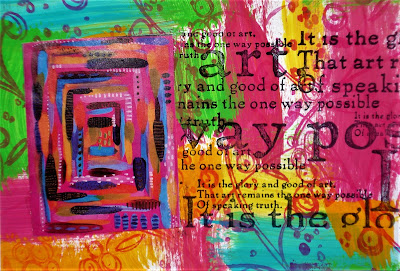 and good of art,
It is the glo
as the one way possible
truth.
art
That art r
ry and good of art,
of speaki
nains the one way possible
truth.
It is the glo
way po
good of art,
he one way possible
It is the glory and good of art,
That art remains the one way possible
Of speaking truth.
It is the glo